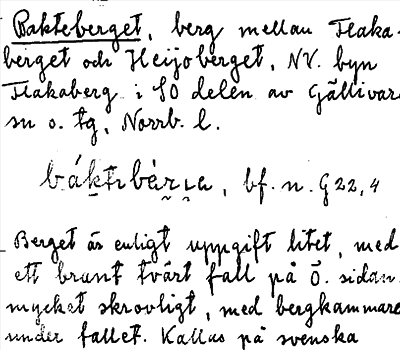 Bakteberget, berg mellan Flaka-
berget och Heijoberget, NV. byn
Flakaberg i SO delen av Gällivare
sn o. tg, Norrb. l.
bf. n. G 22, 4
Berget är enligt uppgift litet, med
ett brant tvärt fall på Ö. sidan,
mycket skrovligt, med bergkammare
under fallet. Kallas på svenska